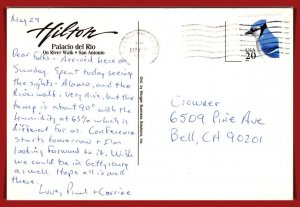 May 24
Hilton
Palacio del Rio
On River Walk • San Antonio
Dear Folks - Arrived here on
Sunday. Spent today seeing
the sights - Alamo, and the
River walk. Very nice, but the
temp is about 90° with the
humidity at 63% which is
different for us. Conference
starts tomorrow - I'm
looking forward to it. Wish
we could be in Gettysburg
as well. Hope all is well
there.
Love,
USA
20
Crowner
6509 Pine Ave
Bell, CA 90201